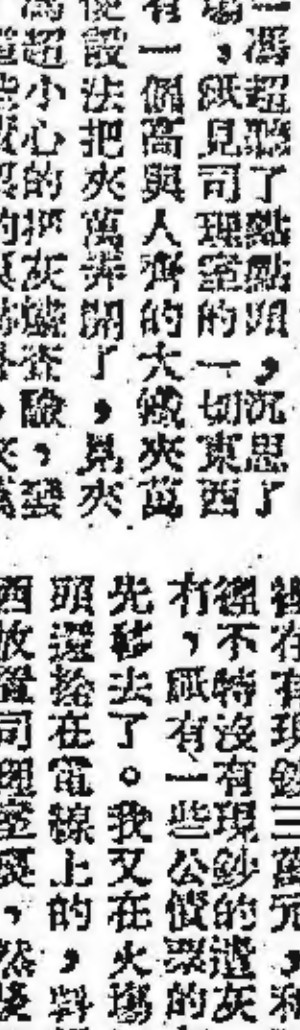 馮超聽了點點頭，沉思了
場，祇見司理室的一切東西
有一個高與人齊的大鐵夾萬
便設法把夾萬弄開了，見夾
馮超小心的把灰燼查驗，發
在有現鈔三萬元，和
裡不特沒有現鈔的遺灰
有，祇有一些公債票的
先移去了。我又在火場
頭還在電線上的，料
西放置司理室裏，然後